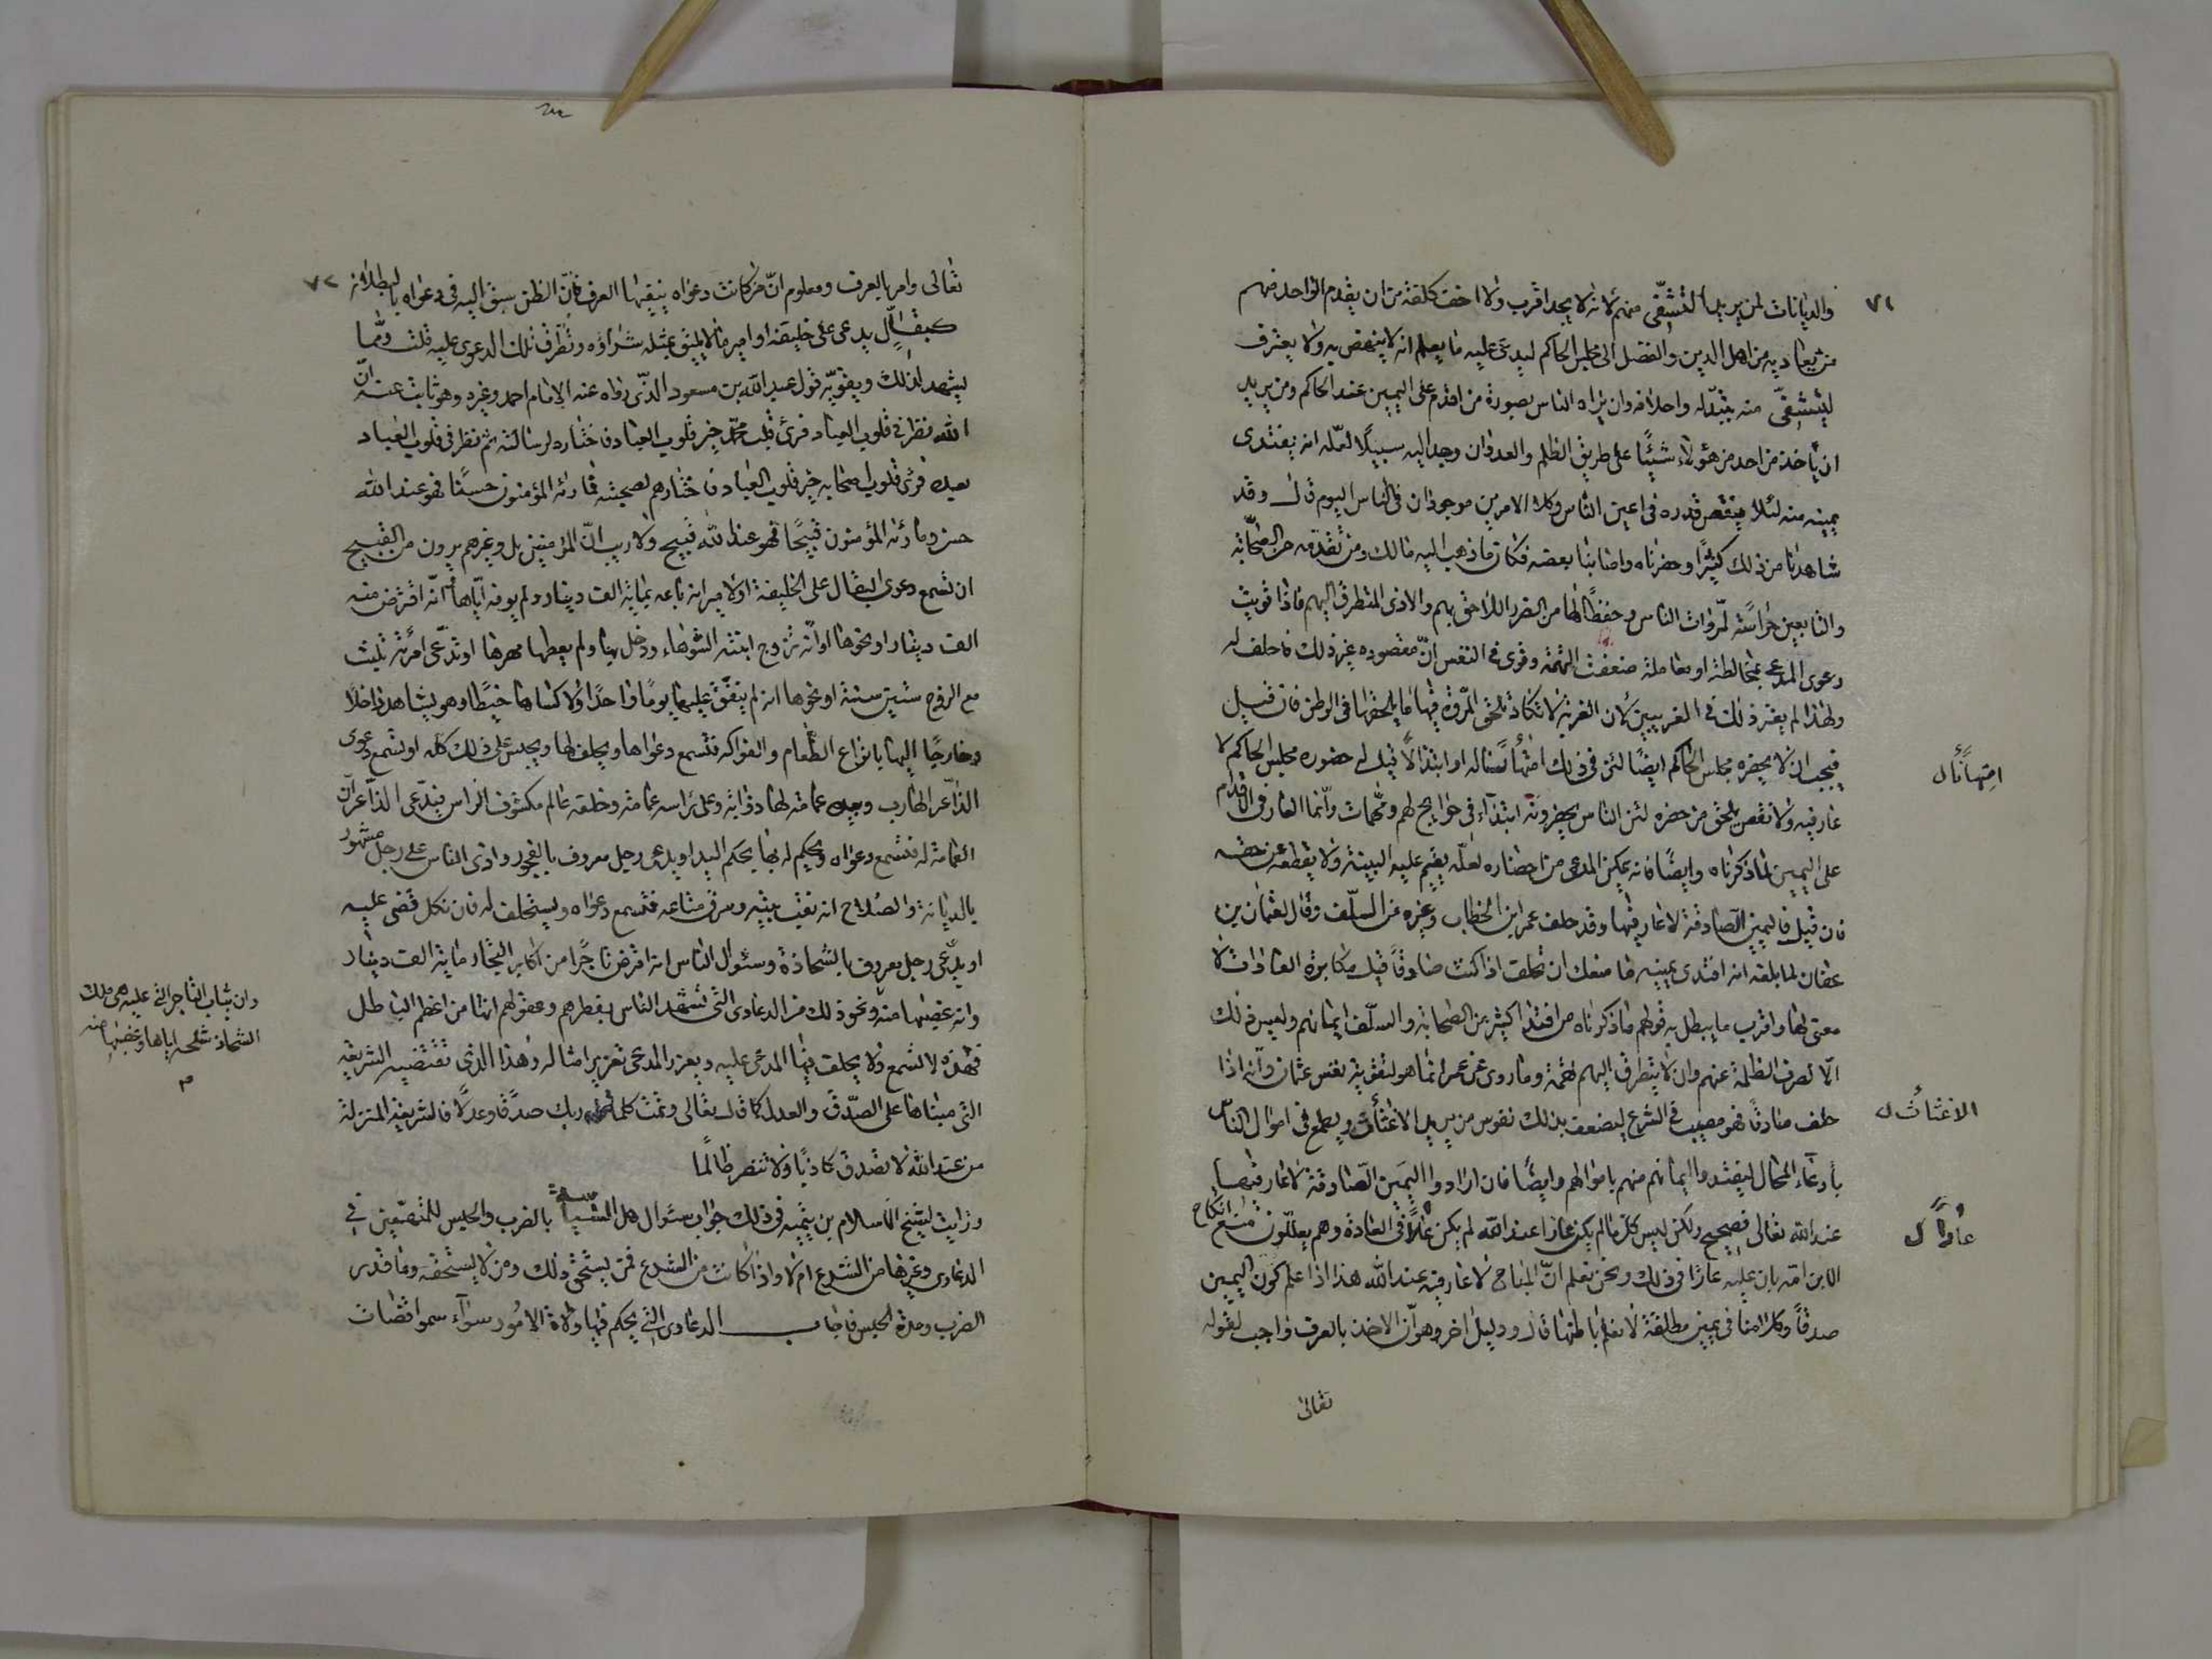 ٧١
والديانات لمن يريد التشفّى منهم لانه لا يجد اقرب ولا اخف كلفة من ان يقدم الواحد منهم
من يعاديه من اهل الدين والفضل الى مجلس الحاكم ليدعى عليه ما يعلم انه لا ينهض به ولا يعترف
ليتشفّى منه بتبذّله واحلافه وان يراه الناس بصورة من اقدم على اليمين عند الحاكم ومن يريد
ان ياخذ من احد من هؤلاء شيئًا على طريق الظلم والعدوان وجد اليه سبيلًا لعلّه انه يفتدى
يمينه منه لئلا ينقص قدره فى اعين الناس وكلا الامرين موجودان فى الناس اليوم قال وقد
شاهدنا من ذلك كثيرًا وحضرناه واصابنا بعضه فكان ما ذهب اليه مالك ومن تقدمه من الصحابة
والتابعين حراسة لمروات الناس وحفظًا لها من الضرر اللاحق بهم والاذى المتطرق اليهم فاذا قويت
دعوى المدعى بمخالطة او معاملة ضعفت التهمة وقوى فى النفس انّ مقصوده غير ذلك فاحلف له
ولهذا لم يعتبر ذلك فى الغريبين لان الغربة لا تكاد تلحق المروّة فيها ما يلحقها فى الوطن فان قيل
فيجب ان لا يحضره مجلس الحاكم ايضًا لئن فى ذلك امتهانًا له او ابتذالًا قيل له حضوره مجلس الحاكم لا
عار فيه ولا نقص يلحق من حضره لئن الناس يحضرونه ابتداء فى حوايج لهم ومهمات وانّما العار فى الاقدام
على اليمين لما ذكرناه وايضًا فانه يمكن المدعى من احضاره لعلّه يقيم عليه البينة ولا يقطعه عن حقه
فان قيل فاليمين الصادقة لا عار فيها وقد حلف عمر ابن الخطاب وغيره من السلف وقال لعثمان بن
عفان لما بلغه انه افتدى يمينه ما منعك ان تحلف اذا كنت صادقًا قيل مكابرة العادات لا
معنى لها واقرب ما يبطل به قولهم ما ذكرناه من افتداء كثير من الصحابة والسلف ايمانهم وليس ذلك
الّا لصرف الظلمة عنهم وان لا يتطرق اليهم تهمة وما روى عن عمر انما هو لتقوية نفس عثمان وانّه اذا
حلف صادقًا فهو مصيب فى الشرع ليضعف بذلك نفوس من يريد الاعنات ويطمع فى اموال الناس
بأدعاء المحال ليفتدوا ايمانهم منهم باموالهم وايضًا فان ارادوا اليمين الصادقة لا عار فيها
عند الله تعالى فصحيح ولكن ليس كلّ ما لم يكن عارا عند الله لم يكن عارًا فى العادة وهم يعلّلون منع انكاح
الابن امه بان عليه عارًا فى ذلك ونحن نعلم انّ المباح لا عار فيه عند الله هذا اذا علم كون اليمين
صدقًا وكلامنا فى يمين مطلقة لا نعلم باطنها قال ودليل اخر وهو انّ الاخذ بالعرف واجب لقوله
تعالى
امتهانًا ل
الاعنات ل
عارًا ل
٧٢
تعالى وامر بالعرف ومعلوم انّ من كانت دعواه ينفيها العرف فانّ الظن سبق اليه فى دعواه بالبطلان
كبقّال يدعى على خليفة او امير ما لا يليق بمثله شراؤه وتطرق تلك الدعوى عليه قلت وممّا
يشهد لذلك ويقويه قول عبد الله بن مسعود الذى رواه عنه الامام احمد وغيره وهو ثابت عنه انّ
الله نظر فى قلوب العباد فرئ قلب محمد خير قلوب العباد فاختاره لرسالته ثم نظر فى قلوب العباد
بعده فرئ قلوب اصحابه خير قلوب العباد فاختارهم لصحبته فما رئه المؤمنون حسنًا فهو عند الله
حسن وما رئه المؤمنون قبيحًا فهو عند الله قبيح ولا ريب انّ المؤمنين بل وغيرهم يرون من القبيح
ان تسمع دعوى البقال على الخليفة او لامير انه باعه بماية الف دينار ولم يوفه ايّاها او انّه اقترض منه
الف دينار او نحوها او انّه تزوج ابنته الشوهاء ودخل بها ولم يعطها مهرها او تدّعى امرئة تلبث
مع الزوج ستين سنة او نحوها انه لم ينفق عليها يومًا واحدًا ولا كساها خيطًا وهو يشاهد داخلًا
وخارجًا اليها بانواع الطعام والفواكه فتسمع دعواها ويحلف لها ويحبس على ذلك كله او تسمع دعوى
الذاعر الهارب وبيده عمامة لها ذؤابة وعلى رأسه عمامة وخلفه عالم مكشوف الراس فيدّعى الذاعر انّ
العمامة له فتسمع دعواه ويحكم له بها بحكم اليد او يدعى رجل معروف بالفجور واذى الناس على رجل مشهور
بالديانة والصلاح انه نقب بيته وسرق متاعه فتسمع دعواه ويستحلف له فان نكل قضى عليه
او يدّعى رجل معروف بالشحاذة وسئوال الناس انه اقرض تاجرًا من اكابر التجار ماية الف دينار
وانه غصبها منه ونحو ذلك من الدعاوى التى تشهد الناس بفطرهم وعقولهم انها من اعظم الباطل
فهذه لا تسمع ولا يحلف فيها المدعى عليه ويعزر المدعى تعزير امثاله وهذا الذى تقتضيه الشريعة
التى مبناها على الصدق والعدل كما قال تعالى وتمت كلمة ربك صدقًا وعدلًا فالشريعة المنزلة
من عند الله لا تصدق كاذبًا ولا تنصر ظالمًا
ورايت لشيخ الاسلام بن تيميه فى ذلك جواب سئوال هل السياسة بالضرب والحبس للمتهمين فى
الدعاوى وغيرها من الشرع ام لا واذا كانت من الشرع فمن يستحق ذلك ومن لا يستحقه وما قدر
الضرب ومدة الحبس فاجاب الدعاوى التى يحكم فيها ولاة الامور سوآء سموا قضاة
وان ثياب التاجر التى عليه هى ملك
الشحاذ شلحه اياها وغصبها منه
م